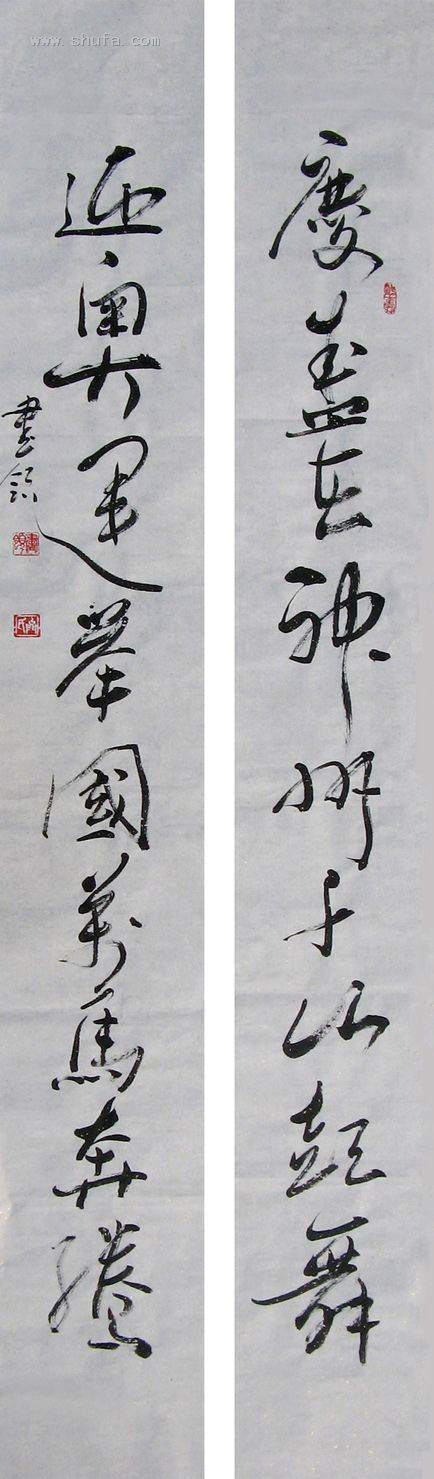 www.shufa.com
慶盛世神州千山起舞
迎奧運舉國萬馬奔騰